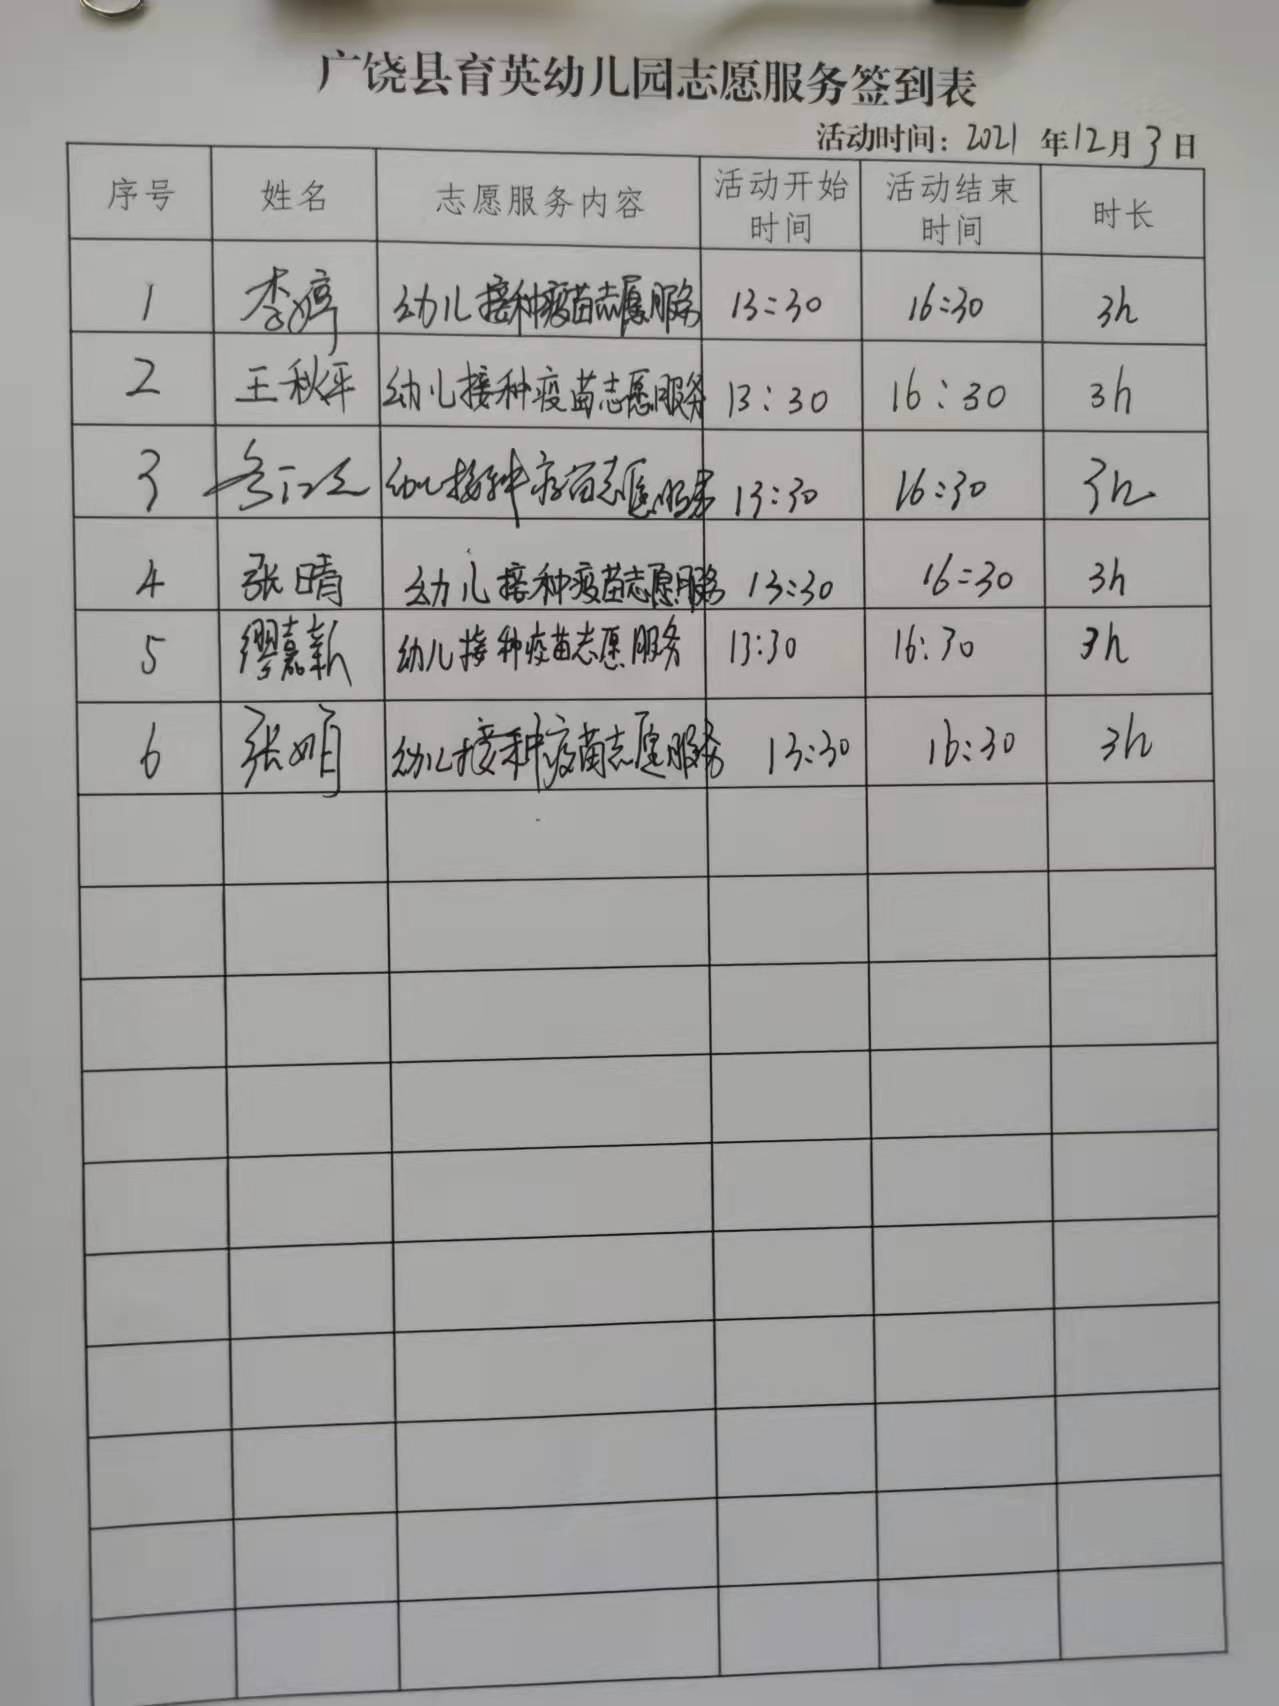 广饶县育英幼儿园志愿服务签到表
活动时间：2021 年12月3日
序号 姓名 志愿服务内容 活动开始时间 活动结束时间 时长
1 李婷 幼儿接种疫苗志愿服务 13:30 16:30 3h
2 王秋平 幼儿接种疫苗志愿服务 13:30 16:30 3h
3 幼儿接种疫苗志愿服务 13:30 16:30 3h
4 张晴 幼儿接种疫苗志愿服务 13:30 16:30 3h
5 缪嘉新 幼儿接种疫苗志愿服务 13:30 16:30 3h
6 张娟 幼儿接种疫苗志愿服务 13:30 16:30 3h